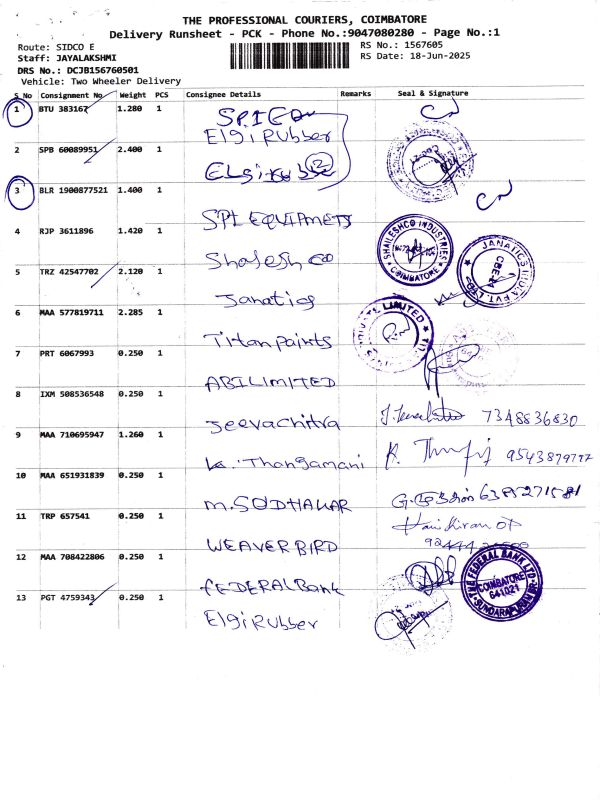 THE PROFESSIONAL COURIERS, COIMBATORE
Delivery Runsheet - PCK - Phone No.:9047080280 - Page No.:1
Route: SIDCO E
RS No.: 1567605
Staff: JAYALAKSHMI
RS Date: 18-Jun-2025
DRS No.: DCJB156760501
Vehicle: Two Wheeler Delivery
S No Consignment No Weight PCS Consignee Details Remarks Seal & Signature
1 BTU 383167 1.280 1
Elgi Rubber
2 SPB 60089951 2.400 1
3 BLR 1900877521 1.400 1
SPL EQUIPMETS
4 RJP 3611896 1.420 1
SHAILESHCO INDUSTRIES COIMBATORE
Shalesh co
5 TRZ 42547702 2.120 1
JANATICS INDIA PVT. LTD CBE-21
Janatics
6 MAA 577819711 2.285 1
LIMITED
Titan paints
7 PRT 6067993 0.250 1
ABI LIMITED
8 IXM 508536548 0.250 1
Jeevachitra 7348836830
9 MAA 710695947 1.260 1
K. Thangamani 9543879777
10 MAA 651931839 0.250 1
M. SODHAKAR 6385271581
11 TRP 657541 0.250 1
WEAVER BIRD
12 MAA 708422806 0.250 1
THE FEDERAL BANK LTD. COIMBATORE 641021
FEDERAL Bank
13 PGT 4759343 0.250 1
Elgi Rubber